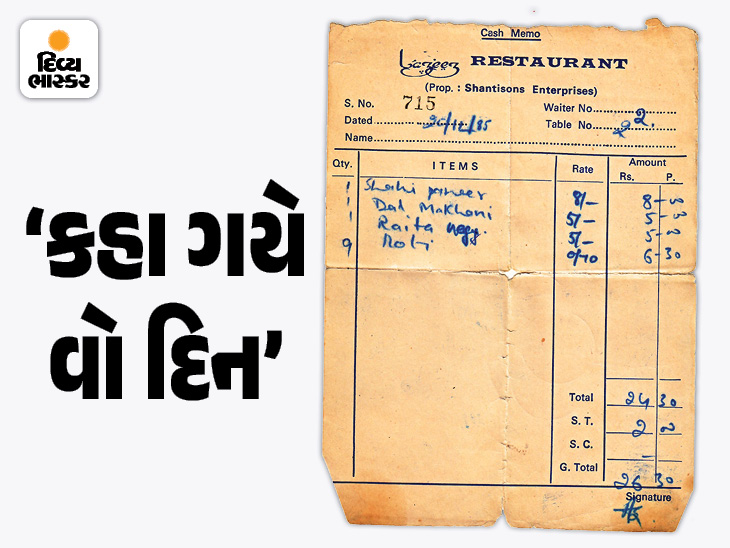 દિવ્ય
ભાસ્કર
‘કહા ગયે
વો દિન’
Cash Memo
Lazeez RESTAURANT
(Prop. : Shantisons Enterprises)
S. No. 715 Waiter No. 2.
Dated 20/12/85 Table No. 2
Name
Qty. ITEMS Rate Amount
Rs. P.
1 Shahi paneer 8/- 8-00
1 Dal Makhani 5/- 5-00
1 Raita vegg. 5/- 5-00
9 Roti 0/70 6-30
Total 24 30
S. T. 2 00
S. C. -
G. Total 26 30
Signature